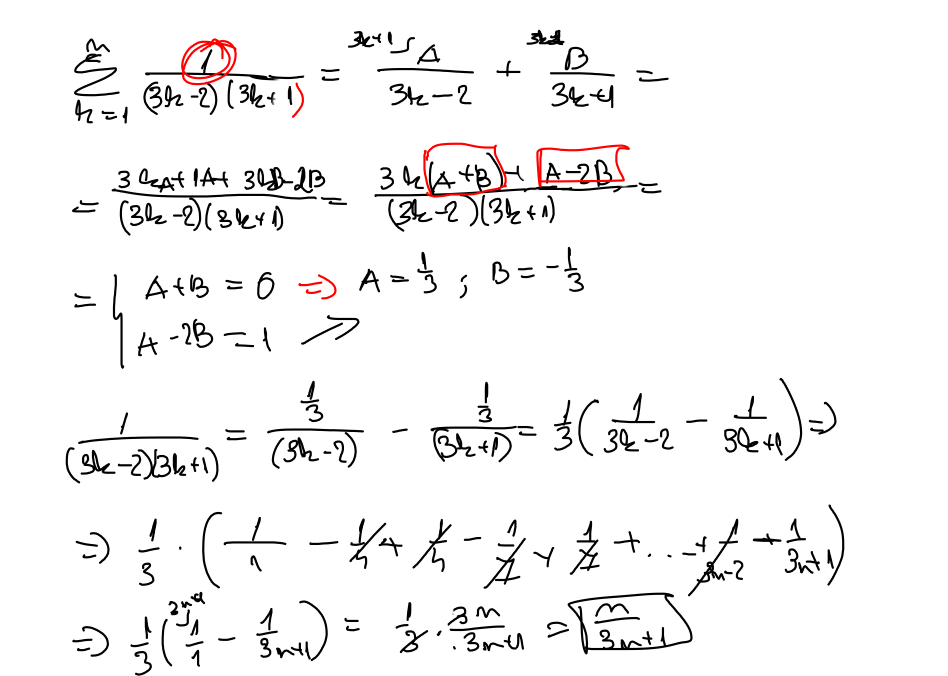 \sum_{k=1}^{n} \frac{1}{(3k-2)(3k+1)} = \frac{{}^{3k+1} A}{3k-2} + \frac{B}{3k+1} =
= \frac{3kA+1A+3kB-2B}{(3k-2)(3k+1)} = \frac{3k(A+B)+A-2B}{(3k-2)(3k+1)} =
= \begin{cases} A+B=0 \Rightarrow A=\frac{1}{3}; B=-\frac{1}{3} \\ A-2B=1 \nearrow \end{cases}
\frac{1}{(3k-2)(3k+1)} = \frac{\frac{1}{3}}{(3k-2)} - \frac{\frac{1}{3}}{(3k+1)} = \frac{1}{3}\left(\frac{1}{3k-2} - \frac{1}{3k+1}\right) \Rightarrow
\Rightarrow \frac{1}{3} \cdot \left(\frac{1}{1} - \frac{1}{4} + \frac{1}{4} - \frac{1}{7} + \frac{1}{7} + \ldots + \frac{1}{3n-2} + \frac{1}{3n+1}\right)
\Rightarrow \frac{1}{3}\left(\frac{{}^{3n+1} 1}{1} - \frac{1}{3n+1}\right) = \frac{1}{3} \cdot \frac{3n}{3n+1} = \boxed{\frac{n}{3n+1}}